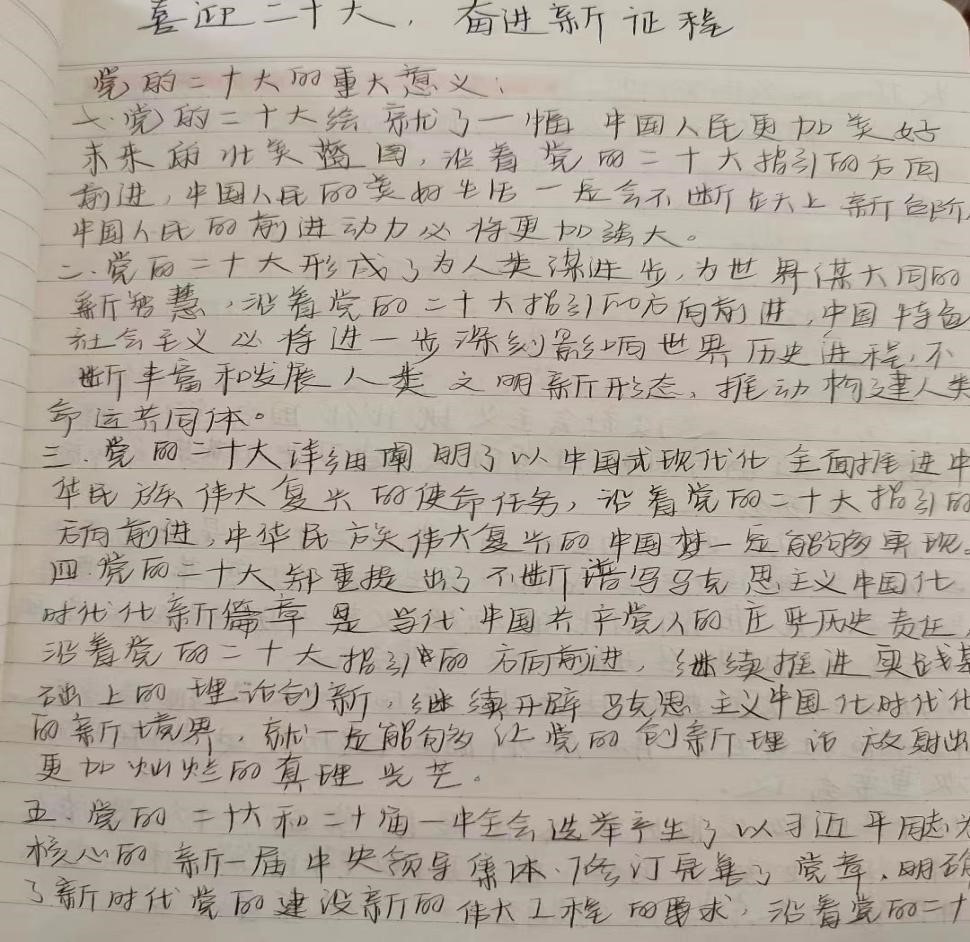 喜迎二十大，奋进新征程
党的二十大的重大意义：
一.党的二十大绘就了一幅中国人民更加美好
未来的壮美蓝图，沿着党的二十大指引的方向
前进，中国人民的美好生活一定会不断跃上新台阶
中国人民的前进动力必将更加强大。
二.党的二十大形成了为人类谋进步，为世界谋大同的
新智慧，沿着党的二十大指引的方向前进，中国特色
社会主义必将进一步深刻影响世界历史进程，不
断丰富和发展人类文明新形态，推动构建人类
命运共同体。
三.党的二十大详细阐明了以中国式现代化全面推进中
华民族伟大复兴的使命任务，沿着党的二十大指引的
方向前进，中华民族伟大复兴的中国梦一定能够实现。
四.党的二十大郑重提出了不断谱写马克思主义中国化
时代化新篇章是当代中国共产党人的庄严历史责任，
沿着党的二十大指引的方向前进，继续推进实践基
础上的理论创新，继续开辟马克思主义中国化时代化
的新境界，就一定能够让党的创新理论放射出
更加灿烂的真理光芒。
五.党的二十大和二十届一中全会选举产生了以习近平同志为
核心的新一届中央领导集体.修订完善了党章.明确
了新时代党的建设新的伟大工程的要求，沿着党的二十